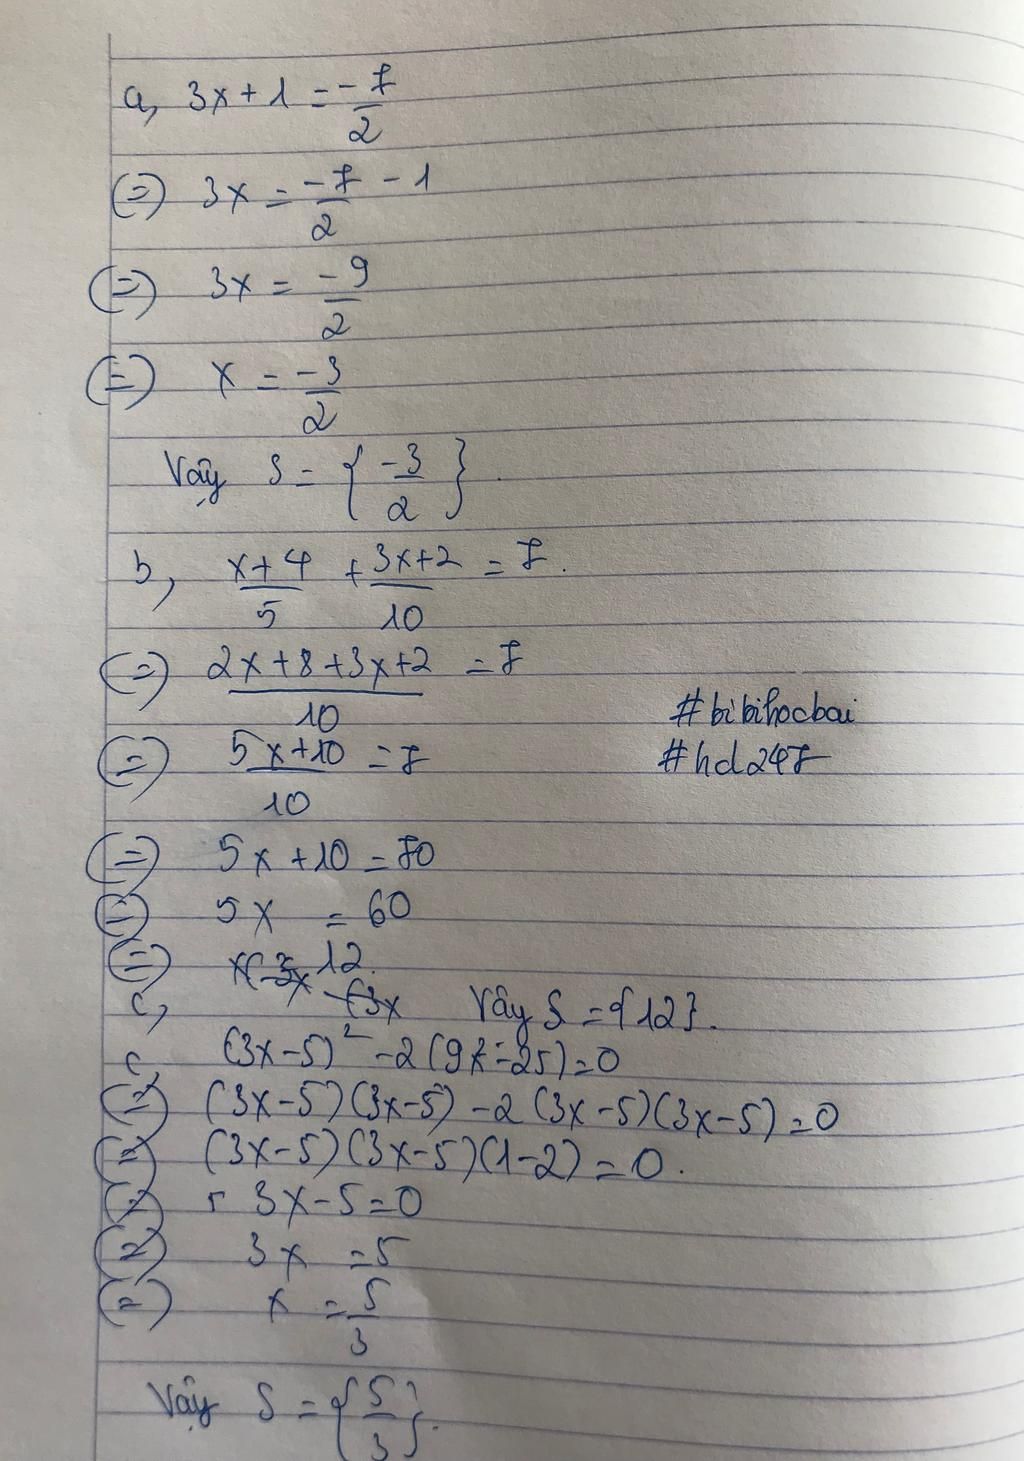 a, 3x + 1 = -7/2
(=) 3x = -7/2 - 1
(=) 3x = -9/2
(=) x = -3/2
Vậy S = { -3/2 }.
b, x+4/5 + 3x+2/10 = 7.
(=) 2x+8+3x+2/10 = 7
#bibihocbai
(=) 5x+10/10 = 7
#hd247
(=) 5x + 10 = 70
(=) 5x = 60
(=) 12.
c, Vậy S = {12}.
c, (3x-5)² - 2(9x²-25) = 0
(=) (3x-5)(3x-5) - 2(3x-5)(3x-5) = 0
(=) (3x-5)(3x-5)(1-2) = 0.
(=) 3x-5 = 0
(=) 3x = 5
(=) x = 5/3
Vậy S = {5/3}.